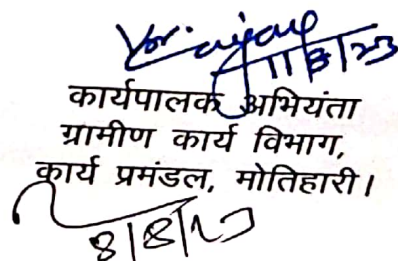 11/8/23
कार्यपालक अभियंता
ग्रामीण कार्य विभाग,
कार्य प्रमंडल, मोतिहारी।
8/8/23